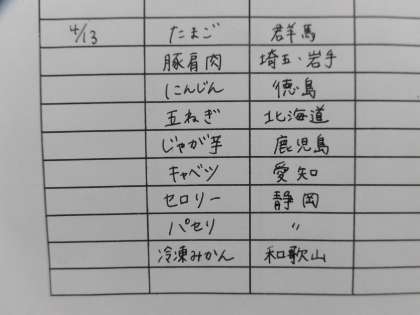 4/13 たまご 群馬
豚肩肉 埼玉・岩手
にんじん 徳島
玉ねぎ 北海道
じゃが芋 鹿児島
キャベツ 愛知
セロリー 静岡
パセリ 〃
冷凍みかん 和歌山